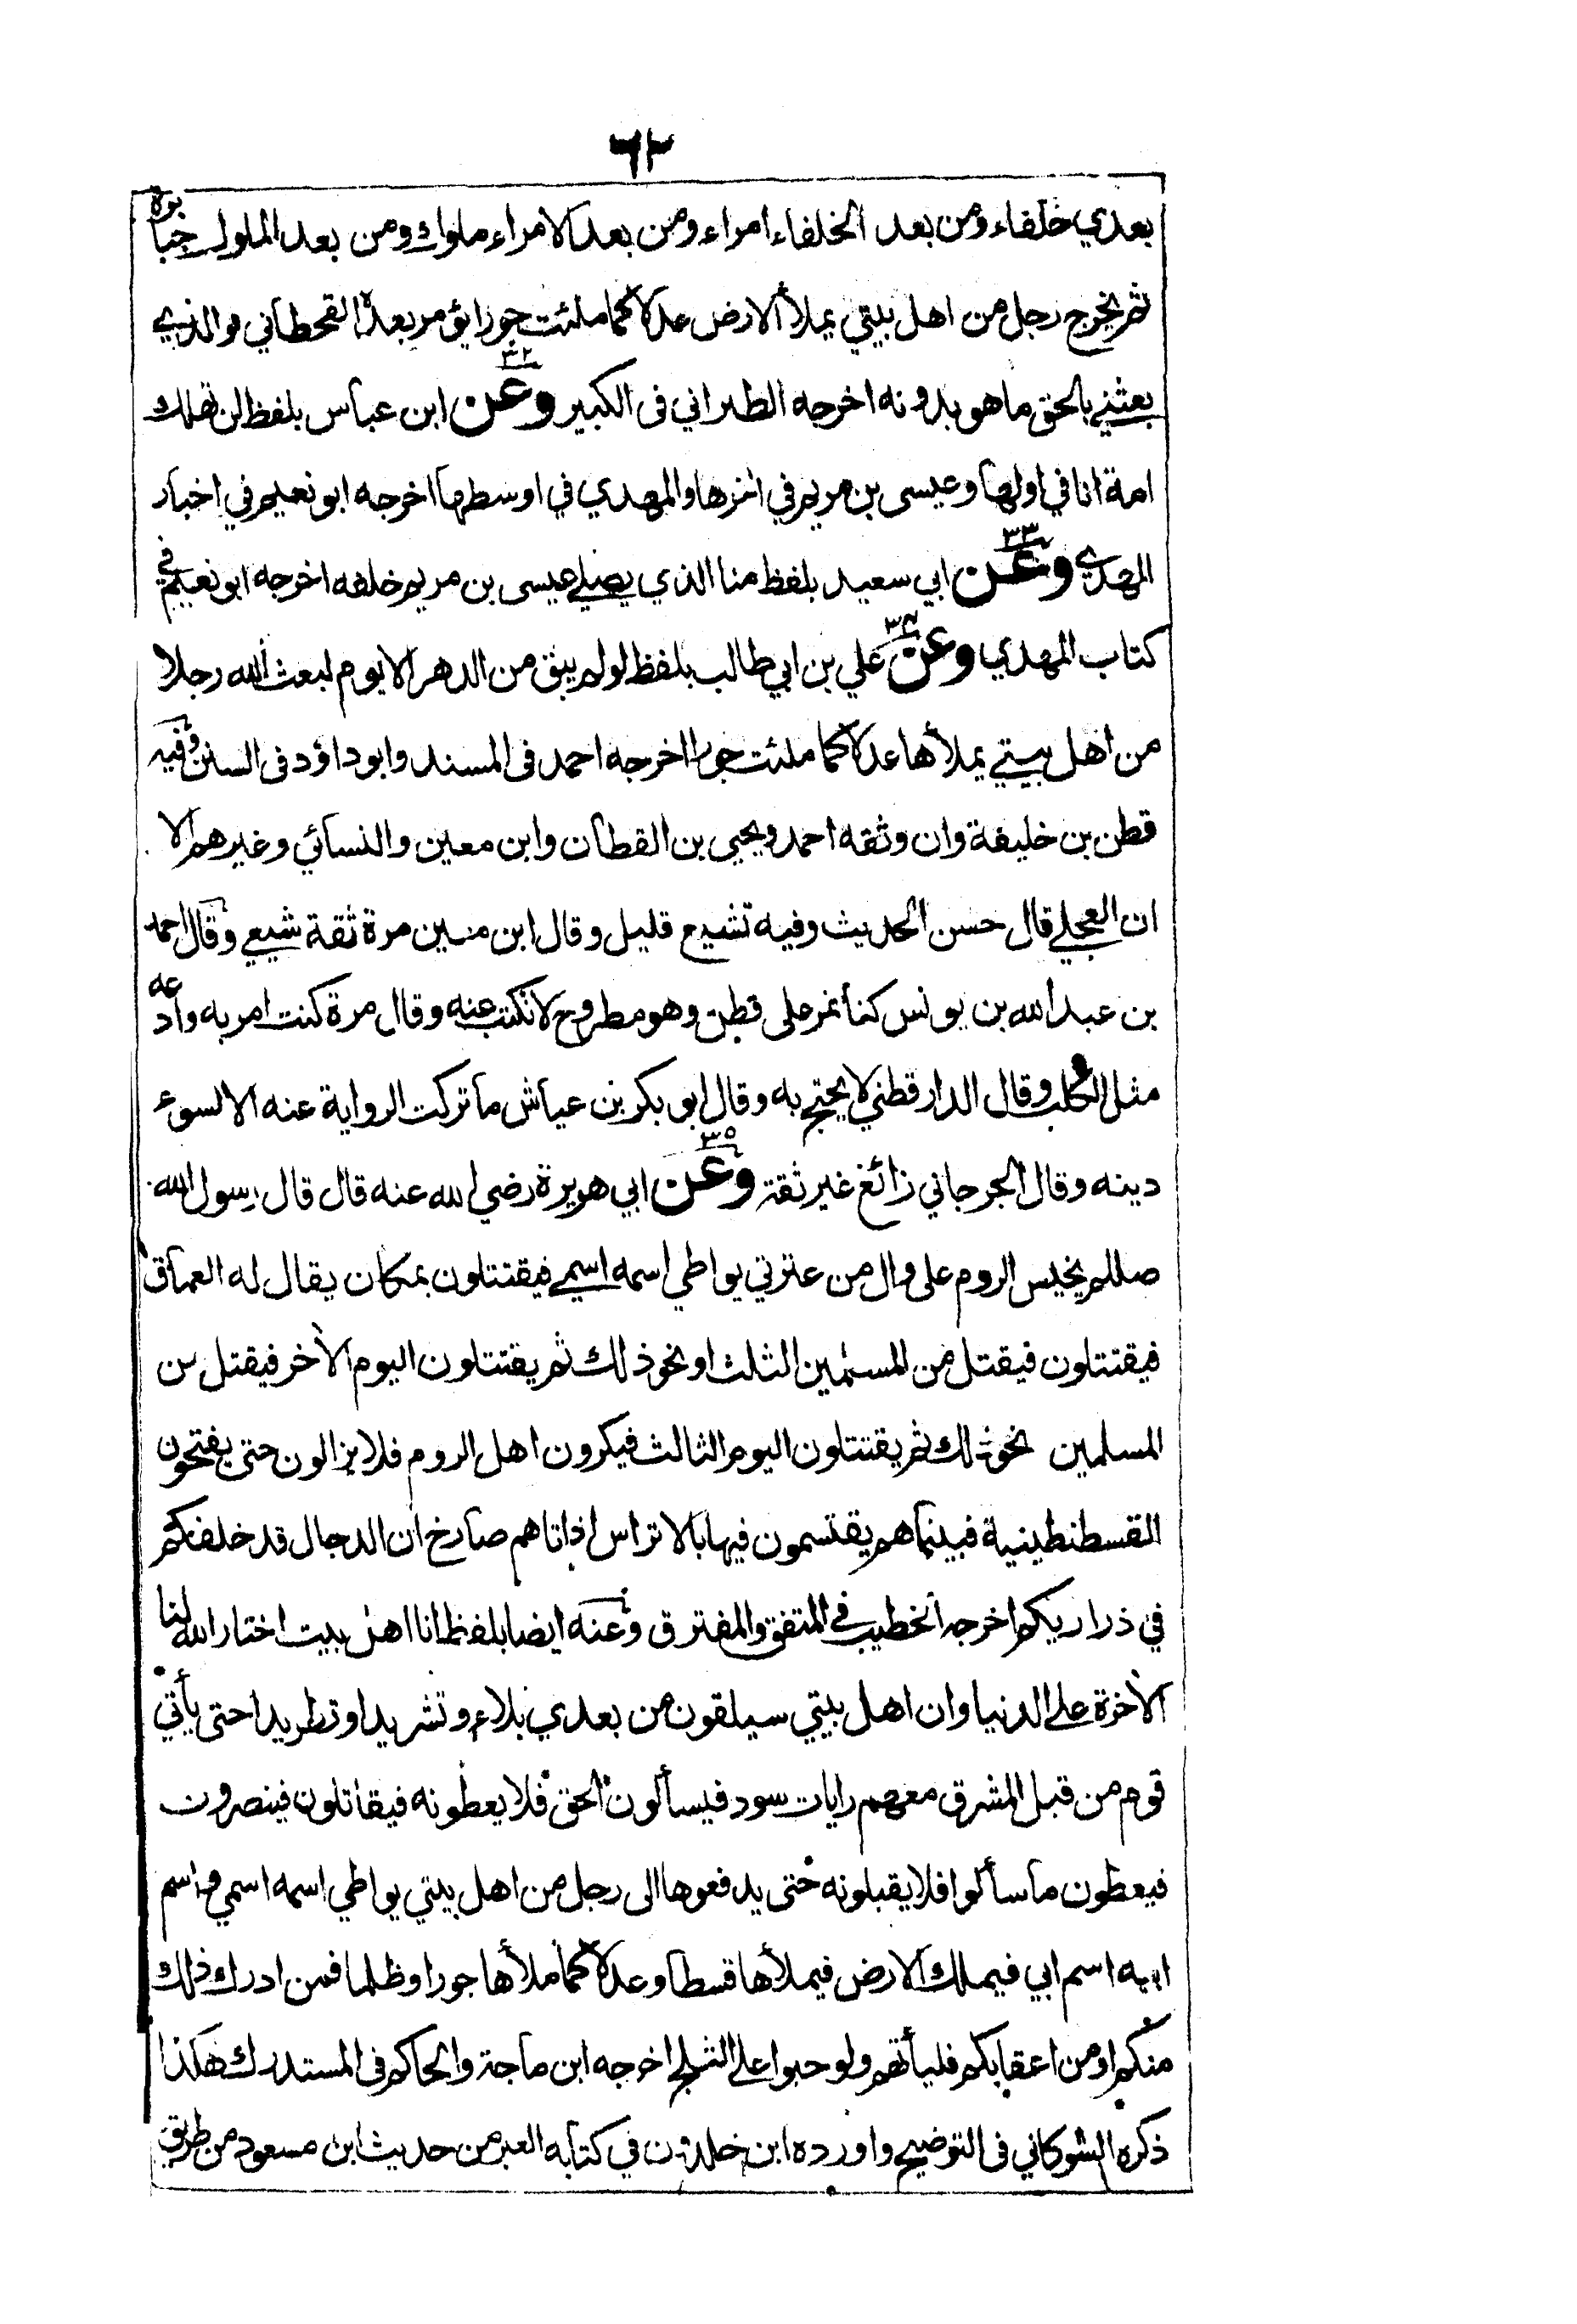 ٦٢
بعدي خلفاء ومن بعد الخلفاء امراء ومن بعد الامراء ملوك ومن بعد الملوك جبابرة
ثم يخرج رجل من اهل بيتي يملأ الارض عدلا كما ملئت جورا ثم يؤمر بعده القحطاني فو الذي
بعثني بالحق ما هو بدونه اخرجه الطبراني فى الكبير وعن ٣٢ ابن عباس بلفظ لن تهلك
امة انا في اولها وعيسى بن مريم في اخرها والمهدي في اوسطها اخرجه ابو نعيم في اخبار
المهدي وعن ٣٣ ابي سعيد بلفظ منا الذي يصلي عيسى بن مريم خلفه اخرجه ابو نعيم في
كتاب المهدي وعن ٣٤ علي بن ابي طالب بلفظ لو لم يبق من الدهر الا يوم لبعث الله رجلا
من اهل بيتي يملأها عدلا كما ملئت جورا اخرجه احمد فى المسند وابو داؤد فى السنن وفيه
قطن بن خليفة وان وثقه احمد ويحيى بن القطان وابن معين والنسائي وغيرهم الا
ان العجلي قال حسن الحديث وفيه تشيع قليل وقال ابن معين مرة ثقة شيعي وقال احمد
بن عبد الله بن يونس كنا نمر على قطن وهو مطروح لا نكتب عنه وقال مرة كنت امر به وادعه
مثل الكلب وقال الدارقطني لا يحتج به وقال ابو بكر بن عياش ما تركت الرواية عنه الا لسوء
دينه وقال الجرجاني زائغ غير ثقة وعن ٣٥ ابي هريرة رضي الله عنه قال قال رسول الله
صللم يخيس الروم على وال من عترتي يواطي اسمه اسمي فيقتتلون بمكان يقال له العماق
فيقتتلون فيقتل من المسلمين الثلث او نحو ذلك ثم يقتتلون اليوم الآخر فيقتل من
المسلمين نحو ذلك ثم يقتتلون اليوم الثالث فيكرون اهل الروم فلا يزالون حتى يفتحون
القسطنطينية فبينما هم يقتسمون فيها بالاتراس اذ اتاهم صارخ ان الدجال قد خلفكم
في ذراريكم اخرجه الخطيب في المتفق والمفترق وعنه ايضا بلفظ انا اهل بيت اختار الله لنا
الآخرة على الدنيا وان اهل بيتي سيلقون من بعدي بلاء وتشريدا وتطريدا حتى يأتي
قوم من قبل المشرق معهم رايات سود فيسألون الحق فلا يعطونه فيقاتلون فينصرون
فيعطون ما سألوا فلا يقبلونه حتى يدفعوها الى رجل من اهل بيتي يواطي اسمه اسمي واسم
ابيه اسم ابي فيملك الارض فيملأها قسطا وعدلا كما ملأها جورا وظلما فمن ادرك ذلك
منكم او من اعقابكم فليأتهم ولو حبوا على الثلج اخرجه ابن ماجة والحاكم فى المستدرك هكذا
ذكره الشوكاني فى التوضيح واورده ابن خلدون في كتابه العبر من حديث ابن مسعود من طريق